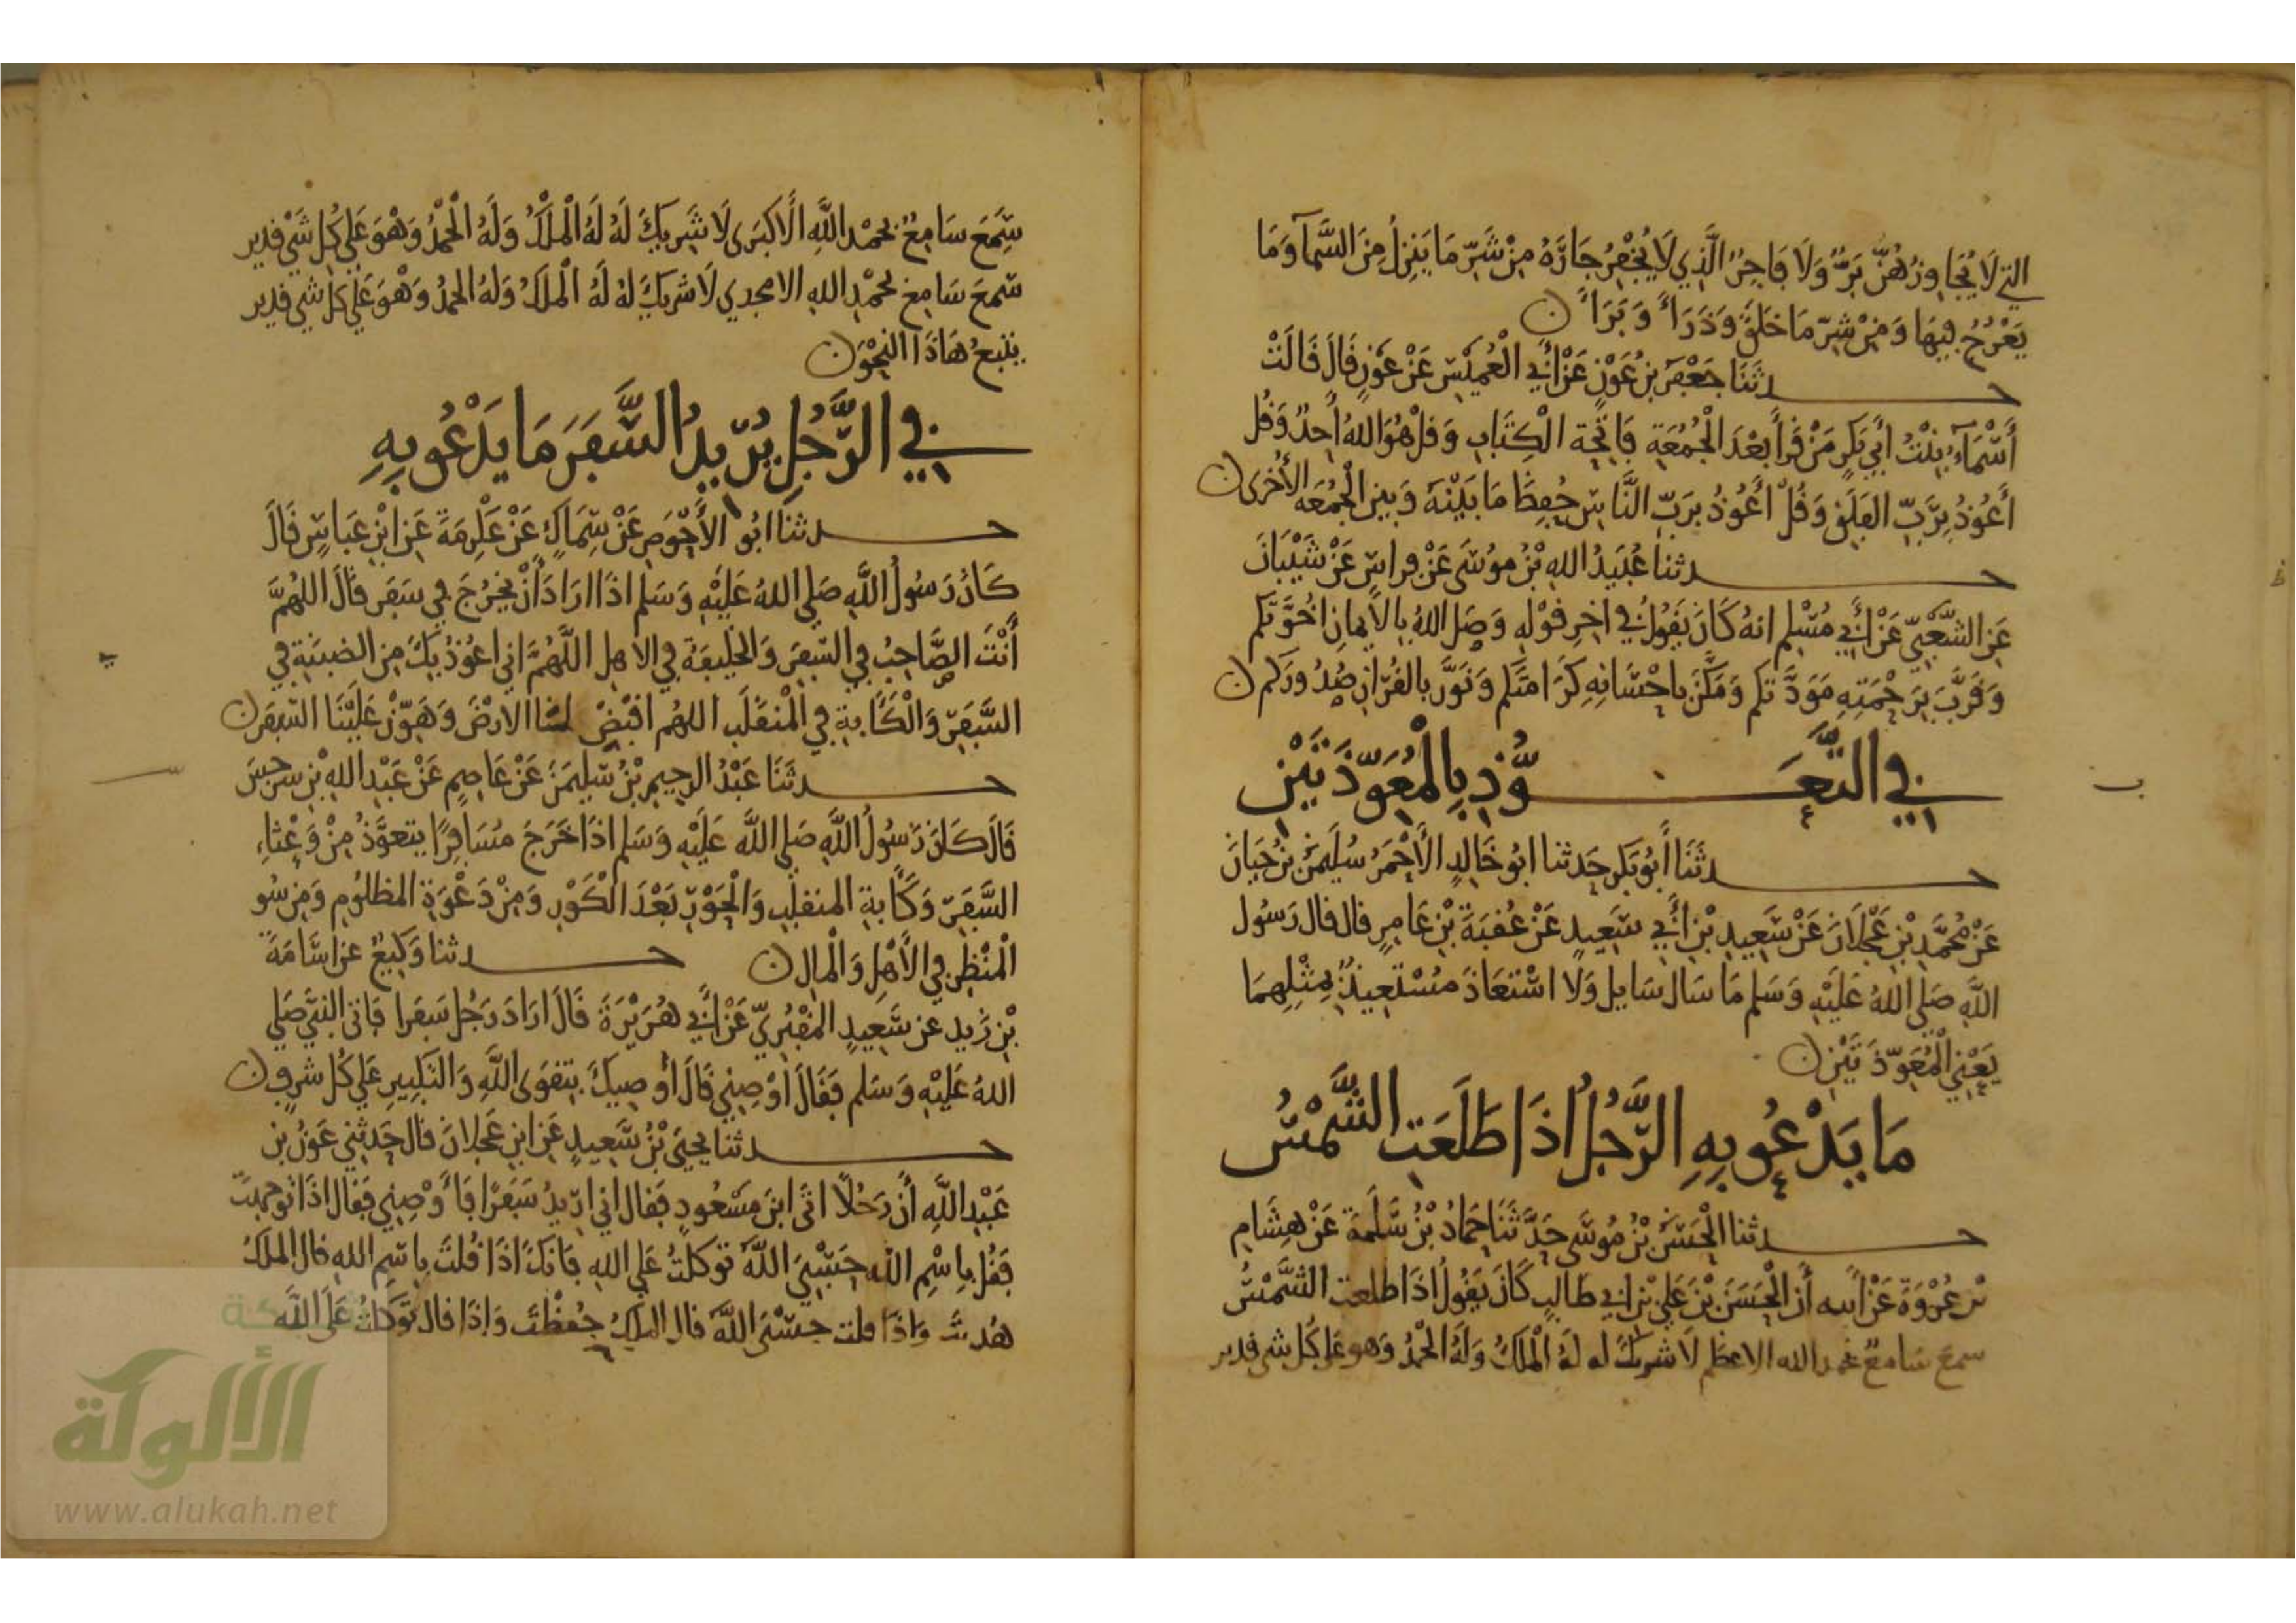 التي لَا يُجَاوِزُهُنَّ بَرٌّ وَلَا فَاجِرٌ الَّذِي لَا يُخْفَرُ جَارُهُ مِنْ شَرِّ مَا يَنزِلُ مِنَ السَّمَآ وَمَا
يَعْرُجُ فِيهَا وَمِنْ شَرِّ مَا خَلَقَ وَذَرَاً وَبَرَاً ن
حدثَنَا جَعْفَر بن عَوْنٍ عَنْ أَبِي الْعُمَيْسِ عَنْ عَوْنٍ قَالَ قَالَتْ
أَسْمَآءُ بِنْتُ أَبِي بَكرٍ مَنْ قَرَأَ بَعْدَ الْجُمُعَةِ فَاتِحَة الْكِتَابِ وَقل هُوَ اللهُ أَحدٌ وَقُل
أَعُوذُ بِرَبِّ الفَلَقِ وَقُلْ أَعُوذُ بِرَبِّ النَّاسِ حُفِظَ مَا بَيْنَهُ وَبين الْجُمُعَه الأُخْرى ن
حدثنا عُبَيدُ اللهِ بْنُ مُوسَى عَنْ فراسٍ عَنْ شَيْبَانَ
عَنِ الشَّعْبِيّ عَنْ أَبِي مُسْلِم انهُ كَانَ يَقُولُ فِي اخِرِ قَوْلِهِ وَصَل اللهُ بِالاِيمَانِ اخُوَّتَكم
وَقَرَّبَ بِرَحْمَتِهِ مَوَدَّتَكم وَمَكَّنَ بِاحْسَانِهِ كَرَامَتَكم وَنَوَّر بالقُرْانِ صُدُورَكم ن
في التَّعَوُّذِ بِالْمُعَوِّذَتَيْنِ
حدثَنَا أَبُو بَكر حَدثنا ابُو خَالِدٍ الأَحْمَرُ سُلَيمَنُ بنُ حَيَانَ
عَنْ مُحَمَّدِ بْنِ عَجْلَانَ عَنْ سَعِيدِ بْنِ أَبِي سَعِيدٍ عَنْ عُقبَةَ بْنِ عَامِرٍ قال قال رَسُول
اللَّهِ صَلَى اللهُ عَلَيْهِ وَسَلم مَا سَال سَايل وَلَا اسْتعَاذَ مُسْتَعِيذٌ بِمِثْلِهِمَا
يَعْنِي الْمُعَوِّذَتَيْنِ ن
مَا يَدْعُو بِهِ الرَّجُلُ اذَا طَلَعَتِ الشَّمْسُ
حدثنا الْحَسَنُ بْنُ مُوسَى حَدَّثَنَا حَمَادُ بْنُ سَلَمَةَ عَنْ هِشَامِ
بن عُرْوَةَ عَنْ أبيه أَن الْحَسَنَ بْنَ عَلِي بْنِ ابِي طَالبٍ كَانَ يَقُولُ اذَا طلعت الشَّمْسُ
سمعَ سَامعٌ بحمد الله الاعظم لَا شريكَ له لَهُ الْمُلكُ وَلَهُ الْحَمْدُ وَهو عَلى كُل شى قدير
سَمعَ سَامِعٌ بحَمْدِ اللَّهِ الَاكبَرى لَا شَرِيكَ لَهُ لَهُ الْمُلْكُ وَلَهُ الْحَمْدُ وَهْوَ عَلى كُل شَي قَدير
سَمعَ سَامِع بحَمْدِ اللهِ الامجدي لَا شريكَ لهُ لَهُ الْمُلكُ وَلهُ الحمدُ وَهْوَ عَلي كل شي قدير
يتبعُ هَاذَا النحْوَ ن
فِي الرَّجُلِ يُرِيدُ السَّفَرَ مَا يَدْعُو بِهِ
حدثنا ابُو الأَحْوَصِ عَنْ سِمَاكٍ عَنْ عِكْرِمَةَ عَنِ ابْنِ عَبَاسٍ قَالَ
كَانَ رَسُولُ اللَّهِ صَلى اللهُ عَلَيْهِ وَسَلم اذَا ارَادَ أَنْ يخرُجَ في سَفَر قَالَ اللهُمَّ
أَنْتَ الصَّاحِبُ فِي السَّفَرِ وَالخَلِيفَةُ فِي الاهلِ اللَّهُمَّ انِي اعُوذُ بِكَ مِنَ الضبنَةِ فِي
السَّفَرِ وَالْكَآبةِ فِي الْمنقَلَبِ اللهُم اقْبِضْ لنا الارْضَ وَهَوِّنْ عَلَيْنَا السَّفَرَ ن
حدثَنَا عَبْدُ الرحِيمِ بْنُ سُلَيمَنَ عَنْ عَاصِمٍ عَنْ عَبْدِ اللهِ بْنِ سرجسَ
قَالَ كَانَ رَسُولُ اللَّهِ صَلى اللَّه عَلَيْهِ وَسَلم اذَا خَرَجَ مُسَافِرًا يتعوَّذُ مِنْ وَعْثَاءِ
السَّفَرِ وَكَآبةِ المنقلَبِ وَالْحَوْرِ بَعْدَ الْكَوْرِ وَمِنْ دَعْوَةِ المظلُومِ وَمِنْ سُو
الْمَنْظَرِ فِي الأَهْلِ وَالْمَالِ ن حدثنا وَكِيعٌ عن اسَامَةَ
بْنِ زَيد عن سَعِيدٍ المَقْبُرِيّ عَنْ أَبِي هُرَيْرَةَ قَالَ ارَادَ رَجُل سَفَرا فَاتى النبيَّ صَلي
اللهُ عَلَيْهِ وَسَلم فَقَالَ اوْصِنِي قَالَ أوصِيكَ بتقوَى اللَّهِ وَالتكبِيرِ عَلي كُل شرفٍ ن
حدثنا يحيَى بْنُ سَعِيدٍ عَنِ ابْنِ عَجلَانَ قال حَدثني عَوْنُ بن
عَبْدِ اللَّهِ أَن رَجُلًا اتَى ابنَ مَسْعُودٍ فَقال اني ارِيدُ سَفَرًا فَأَوْصِنِي فَقال اذَا توجهتَ
فَقُل بِاسْمِ اللهِ حَسْبِيَ اللَّهُ تَوَكلتُ عَلي اللهِ فَانكَ اذَا قُلتَ بِاسْمِ اللهِ قال الملَكُ
هُديتَ وَاذَا قلت حسْبَي اللَّهُ قال الملكُ حُفِظْتَ وَاِذَا قال تَوَكلتُ عَلَى اللَّه
الألوكة
www.alukah.net